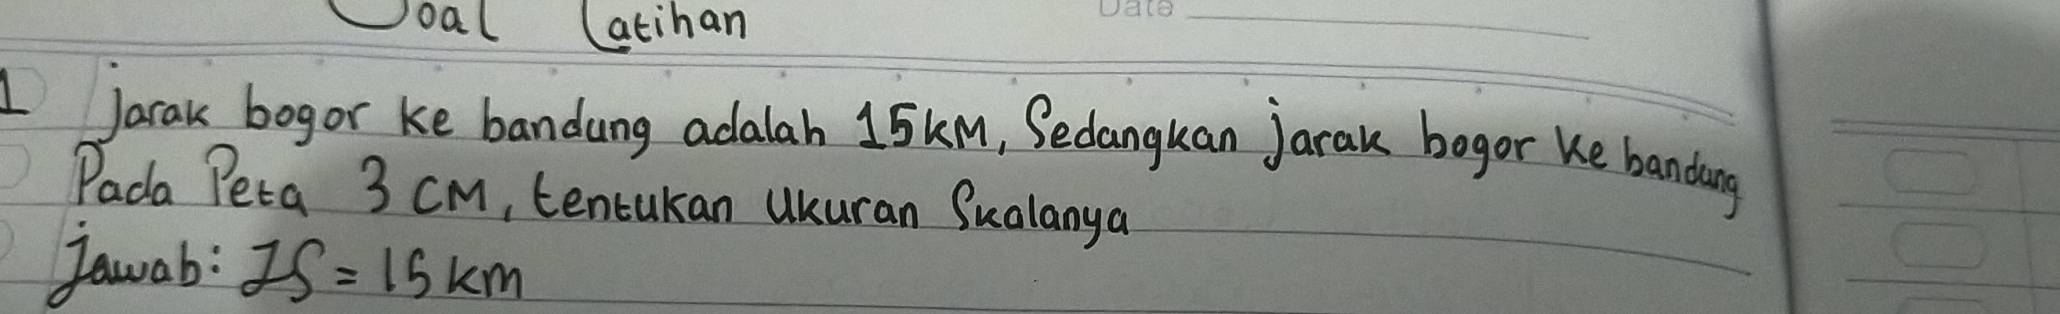 Soal Latihan
Date
1 jarak bogor ke bandung adalah 15 KM, Sedangkan jarak bogor ke bandung
Pada Peta 3 CM, tentukan Ukuran Skalanya
jawab: JS = 15 km